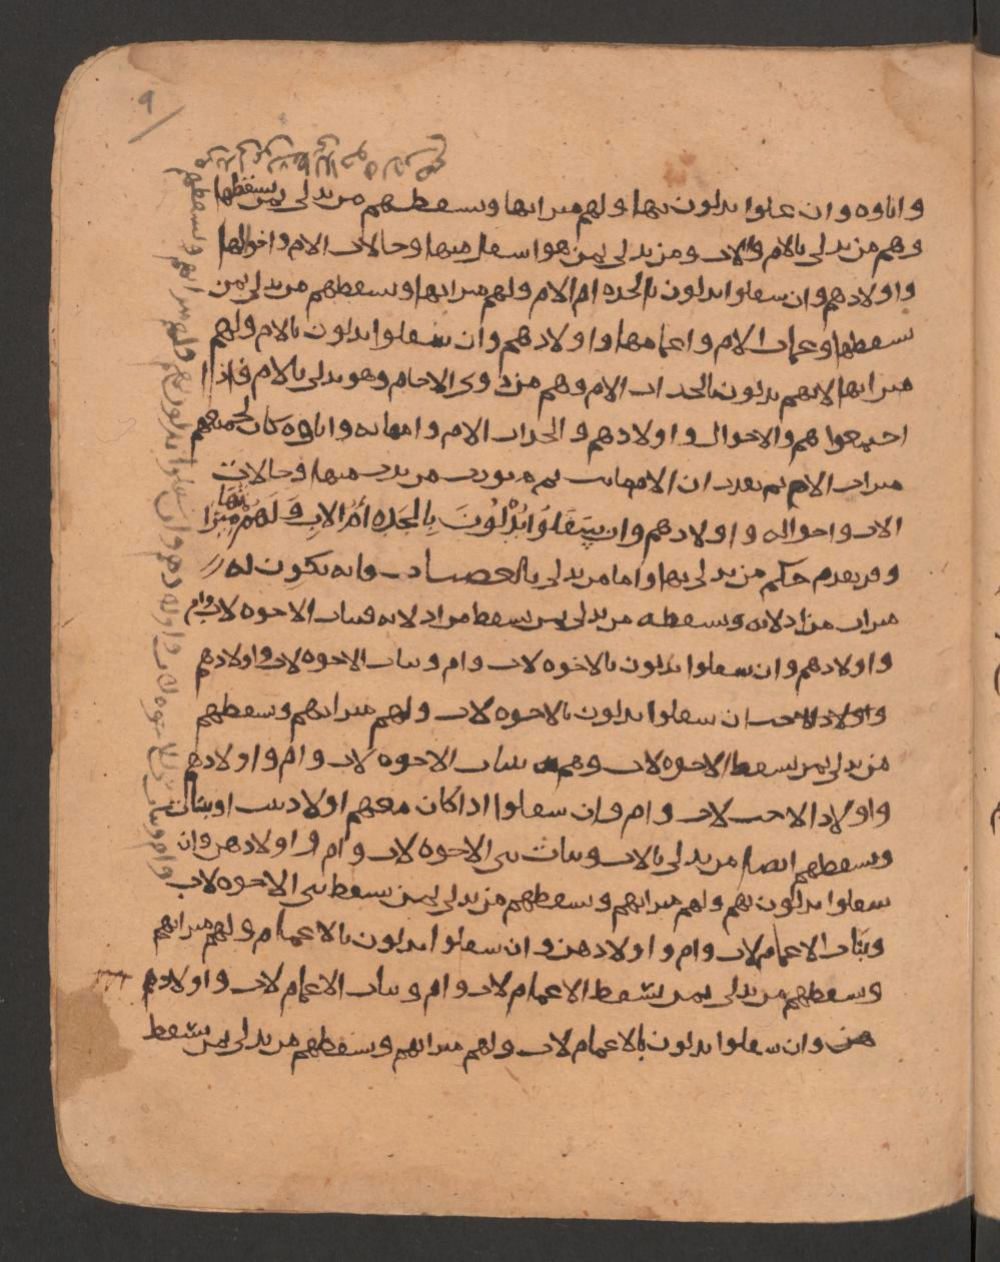 ٩
واباوه وان علوا يدلون بها ولهم ميراثها ويسقطهم من يدلي بمن يسقطها
وهم من يدلي بالام والاب ومن يدلي بمن هو اسفل منها وخالات الام واخوالها
واولادهم وان سفلوا يدلون بالجده ام الام ولهم ميراثها ويسقطهم من يدلي بمن
يسقطها وعمات الام واعمامها واولادهم وان سفلوا يدلون بالام ولهم
ميراثها لانهم يدلون بالجد اب الام وهم من ذوي الارحام وهو يدلي بالام فاذا
اجتمعوا هم والاخوال واولادهم والجد اب الام وامهاته واباوه كان لجميعهم
ميراث الام ثم بعد ان الام ماتت ثم يورث من يرث منها وخالات
الاب واخواله واولادهم وان سَفَلُوا يُدْلُونَ بِالجَدِه أُم الاب وَ لَهُمْ مِيْرَاثها
وقد تقدم حكم من يدلي بها واما من يدلي بالعصبات فانه يكون له
ميراث من ادلا به ويسقطه من يدلي بمن يسقط من ادلا به فبنات الاخوه لاب وام
واولادهم وان سفلوا يدلون بالاخوه لاب وام وبنات الاخوه لاب واولادهم
واولاد الاخت ان سفلوا يدلون بالاخوه لاب ولهم ميراثهم ويسقطهم
من يدلي بمن يسقط الاخوه لاب وهم بنات الاخوه لاب وام واولادهم
واولاد الاخت لاب وام وان سفلوا اذا كان معهم اولاد بنت او بنات
ويسقطهم ايضا من يدلي بالاب وبنات بني الاخوه لاب وام واولادهن وان
سفلوا يدلون بهم ولهم ميراثهم ويسقطهم من يدلي بمن يسقط بني الاخوه لاب
وبَنات الاعمام لاب وام واولادهن وان سفلوا يدلون بالاعمام ولهم ميراثهم
ويسقطهم من يدلي بمن يسقط الاعمام لاب وام وبنات الاعمام لاب واولاد
هن وان سفلوا يدلون بالاعمام لاب ولهم ميراثهم ويسقطهم من يدلي بمن يسقط
وام وبنات بني الاخوه لاب واولادهن وان سفلوا يدلون بهم ولهم ميراثهم ويسقطهم